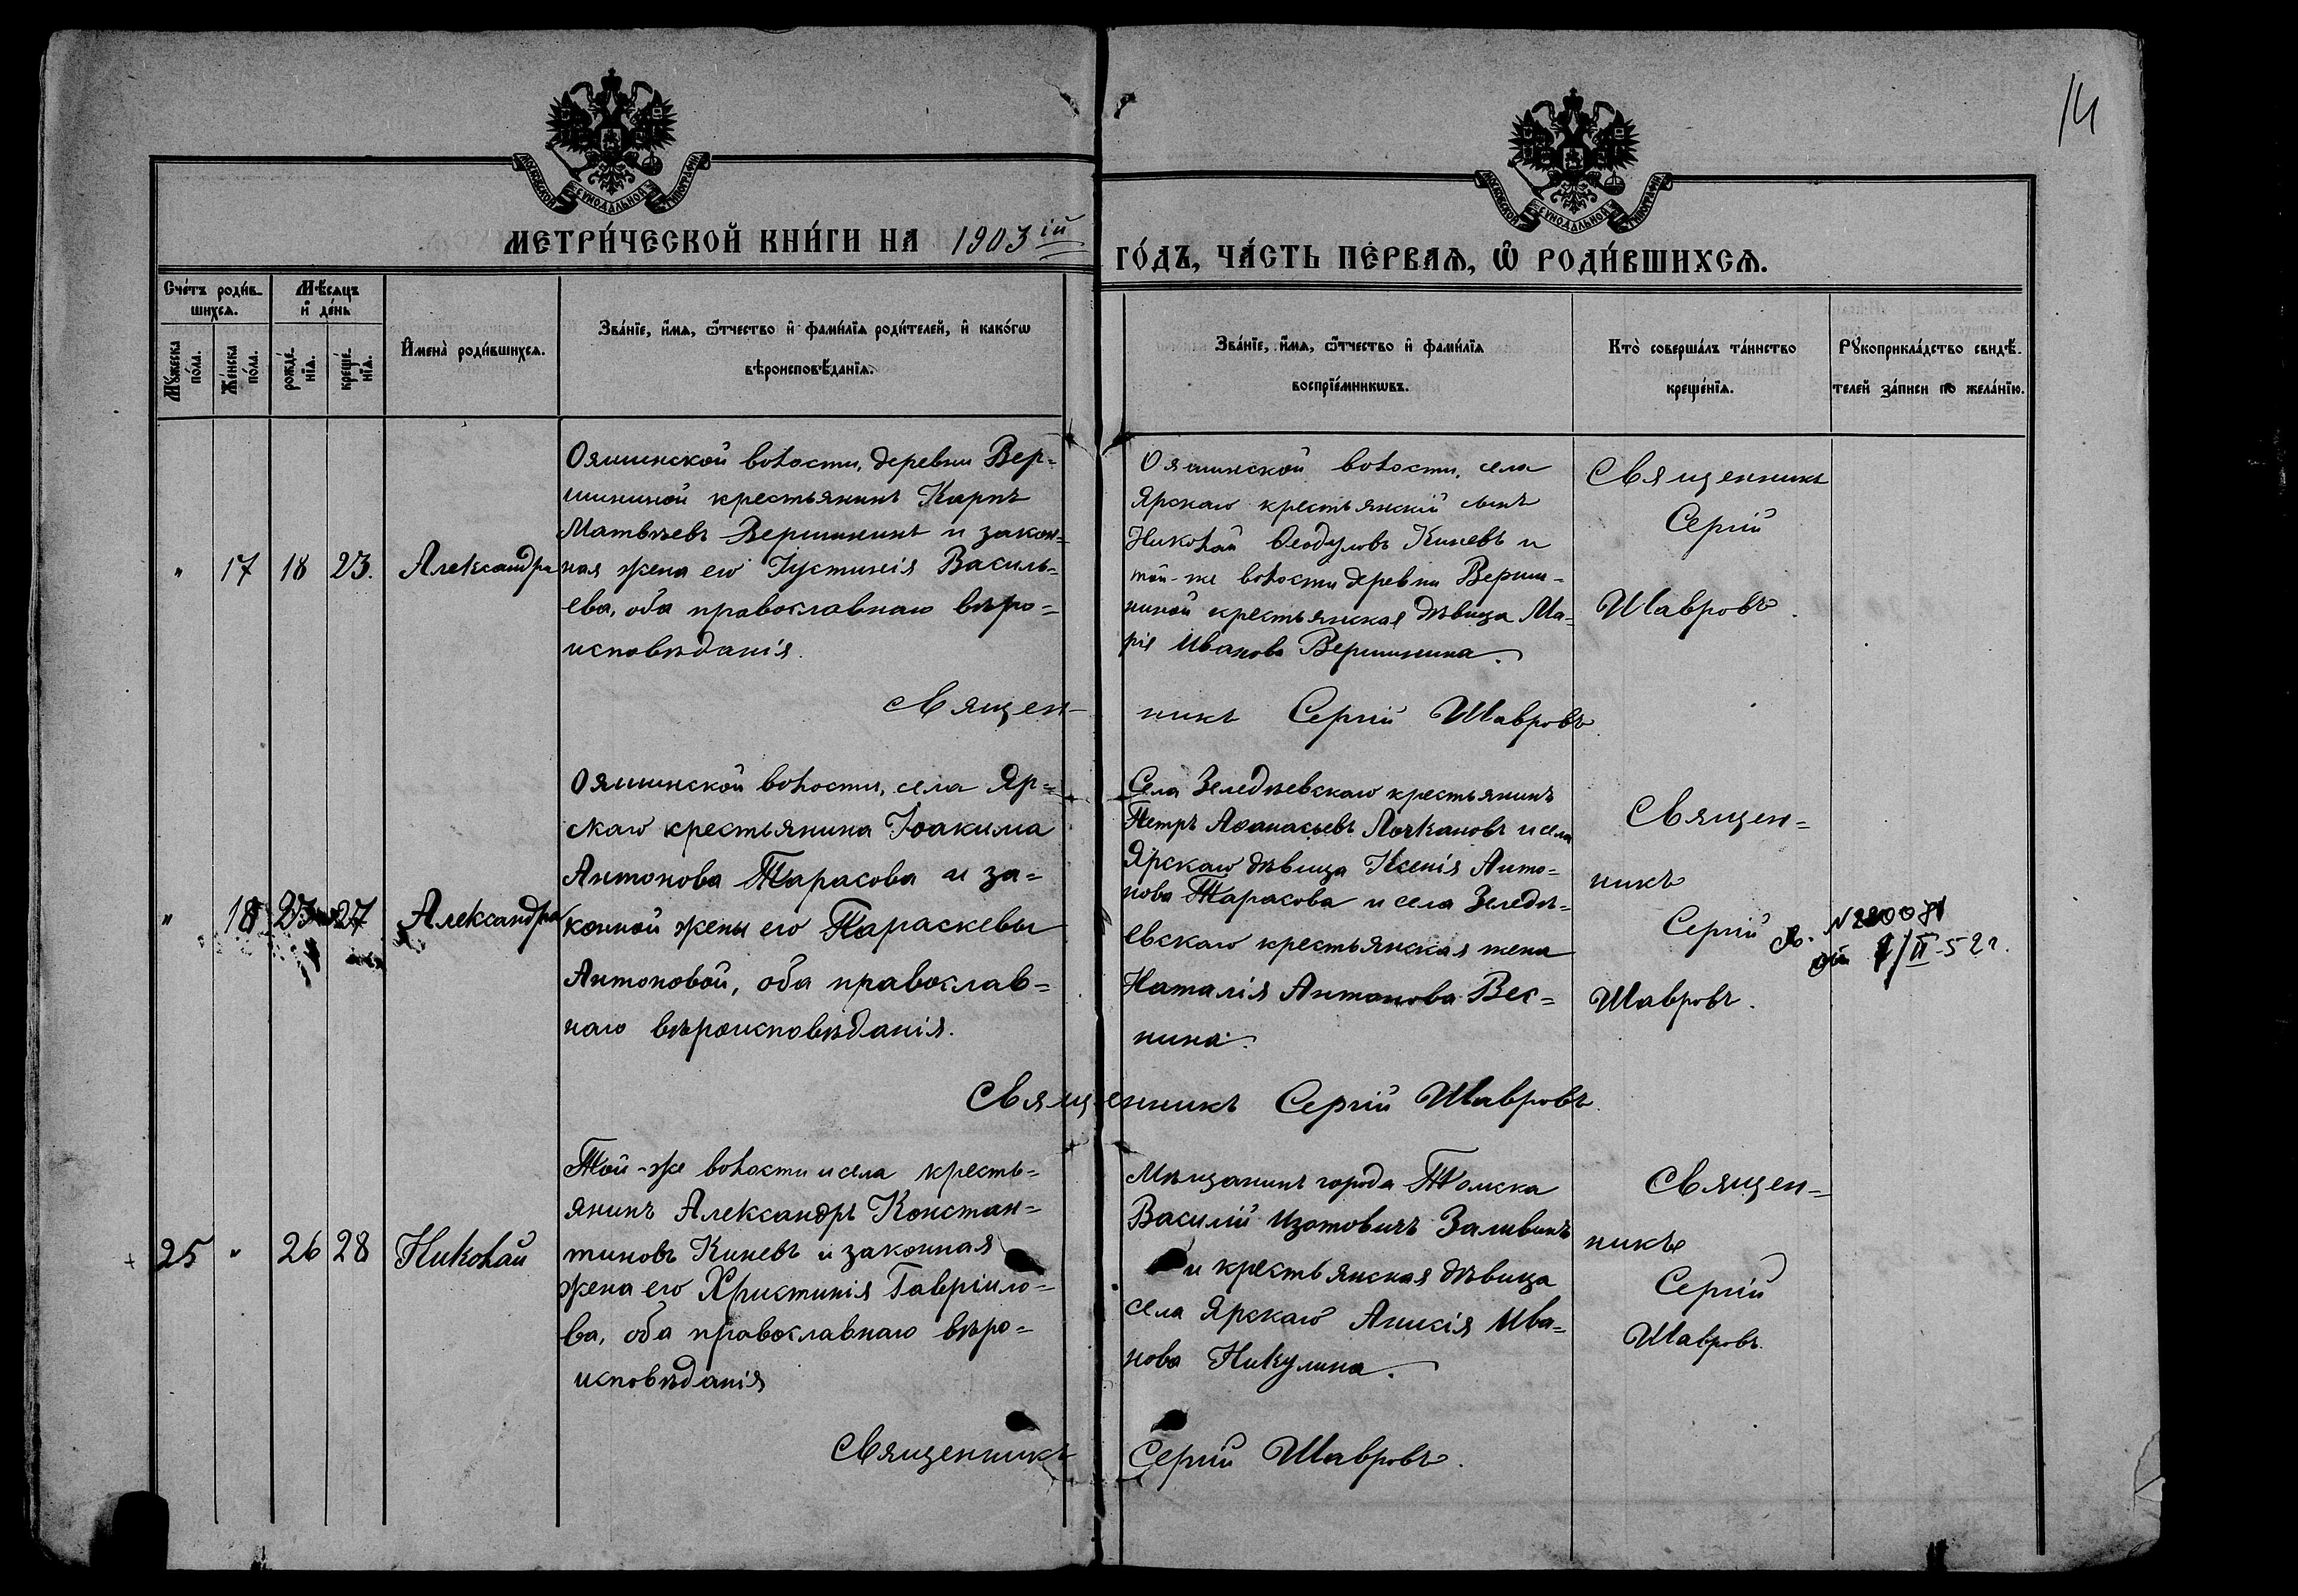 14
МОСКОВСКОЙ СѴНОДАЛЬНОЙ ТИПОГРАФІИ
МОСКОВСКОЙ СѴНОДАЛЬНОЙ ТИПОГРАФІИ
МЕТРИ́ЧЕСКОЙ КНИ́ГИ НА 1903 ій
ГО́ДЪ, ЧА́СТЬ ПЕ́РВАѦ, Ѽ РОДИ́ВШИХСѦ.
Сче́тъ роди́в-
шихсѧ.
Мꙋ́жеска
по́ла.
Же́нска
по́ла.
Мѣ́сѧцъ
и҆ де́нь
рожде́-
нїѧ.
креще́-
нїѧ.
И҆мена̀ роди́вшихсѧ.
Зва́нїе, и҆́мѧ, ѻ҆́тчество и҆ фами́лїѧ роди́телей, и҆ како́гѡ
вѣроисповѣ́данїѧ.
Зва́нїе, и҆́мѧ, ѻ҆́тчество и҆ фами́лїѧ
воспрїе́мникѡвъ.
Кто̀ соверша́лъ та́инство
креще́нїѧ.
Рꙋкоприкла́дство свидѣ́-
телей за́писи по жела́нїю.
" 17 18 23. Александра
Ояшинской волости, деревни Вер-
шининой крестьянинъ Карпъ
Матвѣевъ Вершининъ и закон-
ная жена его Іустинія Василь-
ева, оба православнаго вѣро-
исповѣданія.
Ояшинской волости, села
Ярскаго крестьянскій сынъ
Николай Ѳеодуловъ Киневъ и
той-же волости деревни Верши-
ниной крестьянская дѣвица Ма-
рія Иванова Вершинина.
Священникъ
Сергій
Шавровъ.
Священ-
никъ Сергій Шавровъ
" 18 23 27 Александра
Ояшинской волости, села Яр-
скаго крестьянина Іоакима
Антонова Тарасова и за-
конной жены его Параскевы
Антоновой, оба православ-
наго вѣроисповѣданія.
Села Зеледѣевскаго крестьянинъ
Петръ Аѳанасьевъ Лочкановъ и села
Ярскаго дѣвица Ксенія Анто-
нова Тарасова и села Зеледѣ-
евскаго крестьянская жена
Наталія Антонова Вес-
нина.
Священ-
никъ
Сергій
Шавровъ.
/II-52 г.
Священникъ Сергій Шавровъ.
25 " 26 28 Николай
Той-же волости и села кресть-
янинъ Александръ Констан-
тиновъ Киневъ и законная
жена его Христинія Гавріило-
ва, оба православнаго вѣро-
исповѣданія
Мѣщанинъ города Томска
Василій Изотовичъ Заливинъ
и крестьянская дѣвица
села Ярскаго Анисія Ива-
нова Никулина.
Священ-
никъ
Сергій
Шавровъ.
Священникъ
Сергій Шавровъ.